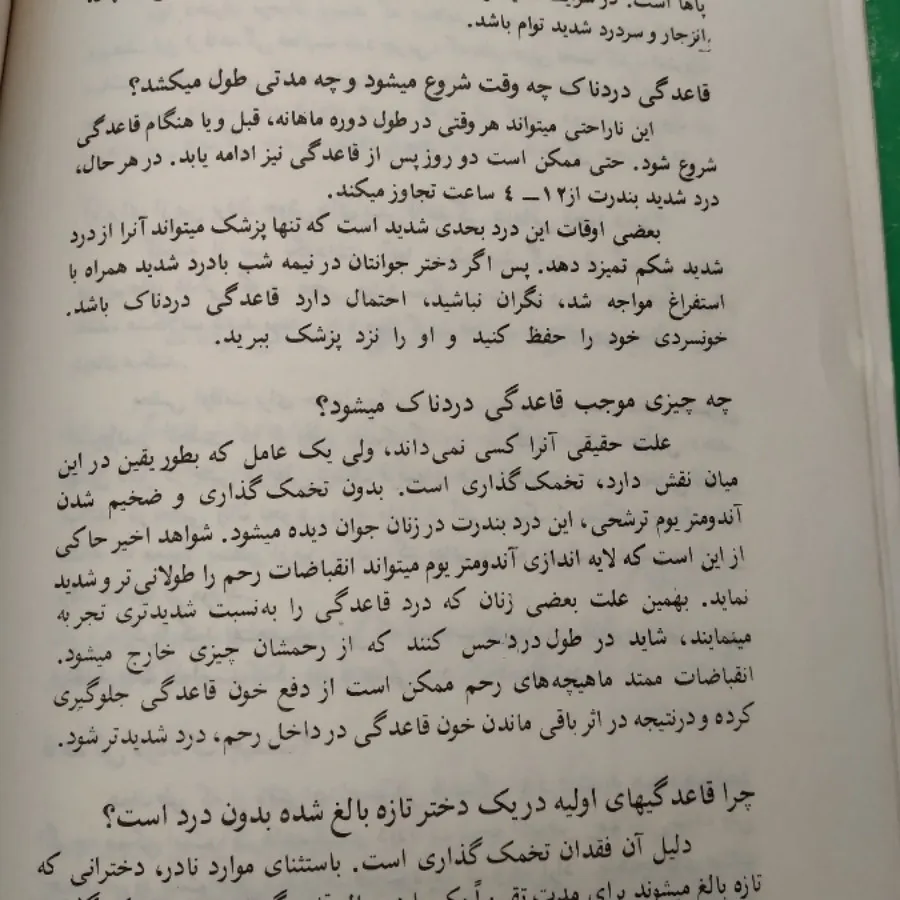 پاها است. در
انزجار و سردرد شدید توام باشد.
قاعدگی دردناک چه وقت شروع میشود و چه مدتی طول میکشد؟
این ناراحتی میتواند هر وقتی در طول دوره ماهانه، قبل و یا هنگام قاعدگی
شروع شود. حتی ممکن است دو روز پس از قاعدگی نیز ادامه یابد. در هر حال،
درد شدید بندرت از ۱۲ــ ٤ ساعت تجاوز میکند.
بعضی اوقات این درد بحدی شدید است که تنها پزشک میتواند آنرا از درد
شدید شکم تمیزد دهد. پس اگر دختر جوانتان در نیمه شب بادرد شدید همراه با
استفراغ مواجه شد، نگران نباشید، احتمال دارد قاعدگی دردناک باشد.
خونسردی خود را حفظ کنید و او را نزد پزشک ببرید.
چه چیزی موجب قاعدگی دردناک میشود؟
علت حقیقی آنرا کسی نمی‌داند، ولی یک عامل که بطور یقین در این
میان نقش دارد، تخمک گذاری است. بدون تخمک گذاری و ضخیم شدن
آندومتر یوم ترشحی، این درد بندرت در زنان جوان دیده میشود. شواهد اخیر حاکی
از این است که لایه اندازی آندومتر یوم میتواند انقباضات رحم را طولانی‌تر و شدید
نماید. بهمین علت بعضی زنان که درد قاعدگی را به‌نسبت شدیدتری تجربه
مینمایند، شاید در طول درد حس کنند که از رحمشان چیزی خارج میشود.
انقباضات ممتد ماهیچه‌های رحم ممکن است از دفع خون قاعدگی جلوگیری
کرده و درنتیجه در اثر باقی ماندن خون قاعدگی در داخل رحم، درد شدیدتر شود.
چرا قاعدگیهای اولیه در یک دختر تازه بالغ شده بدون درد است؟
دلیل آن فقدان تخمک گذاری است. باستثنای موارد نادر، دخترانی که
تازه بالغ میشوند برای مدت تقریباً یک